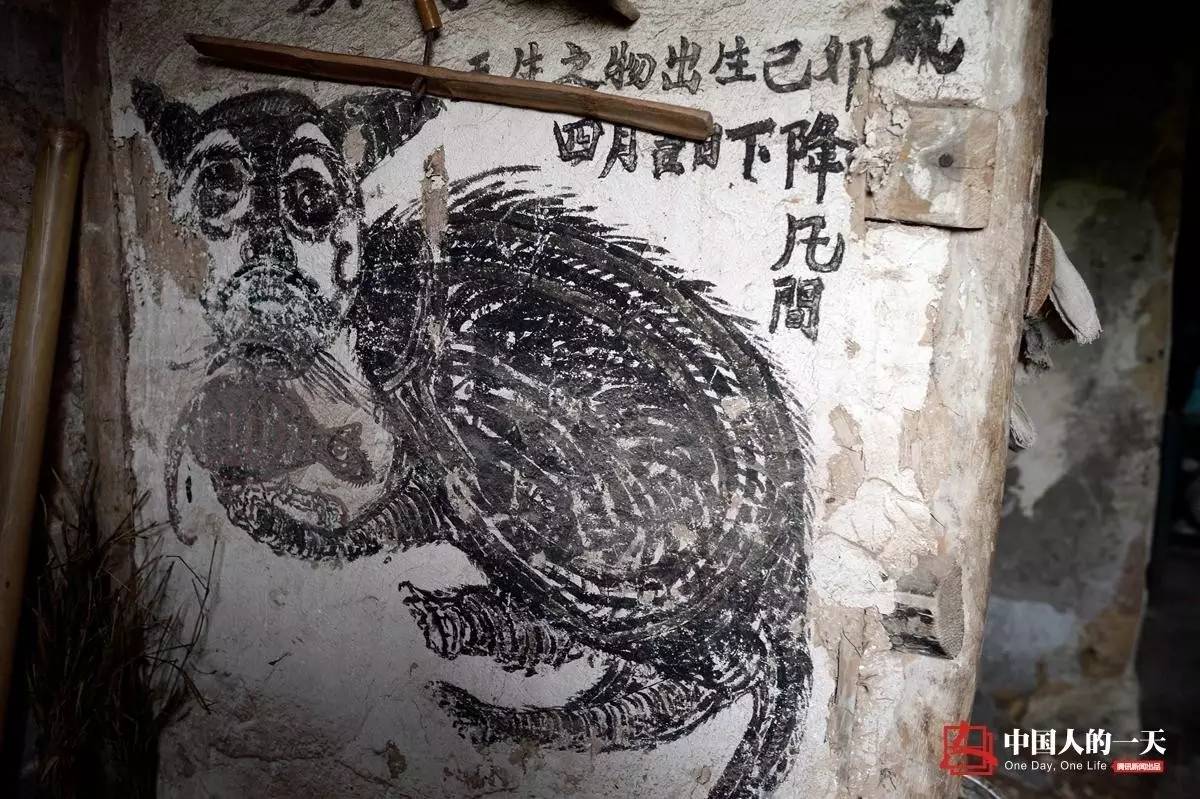 生之物出生己卯
四月 日下降
凡
間
中国人的一天
One Day, One Life
腾讯新闻出品